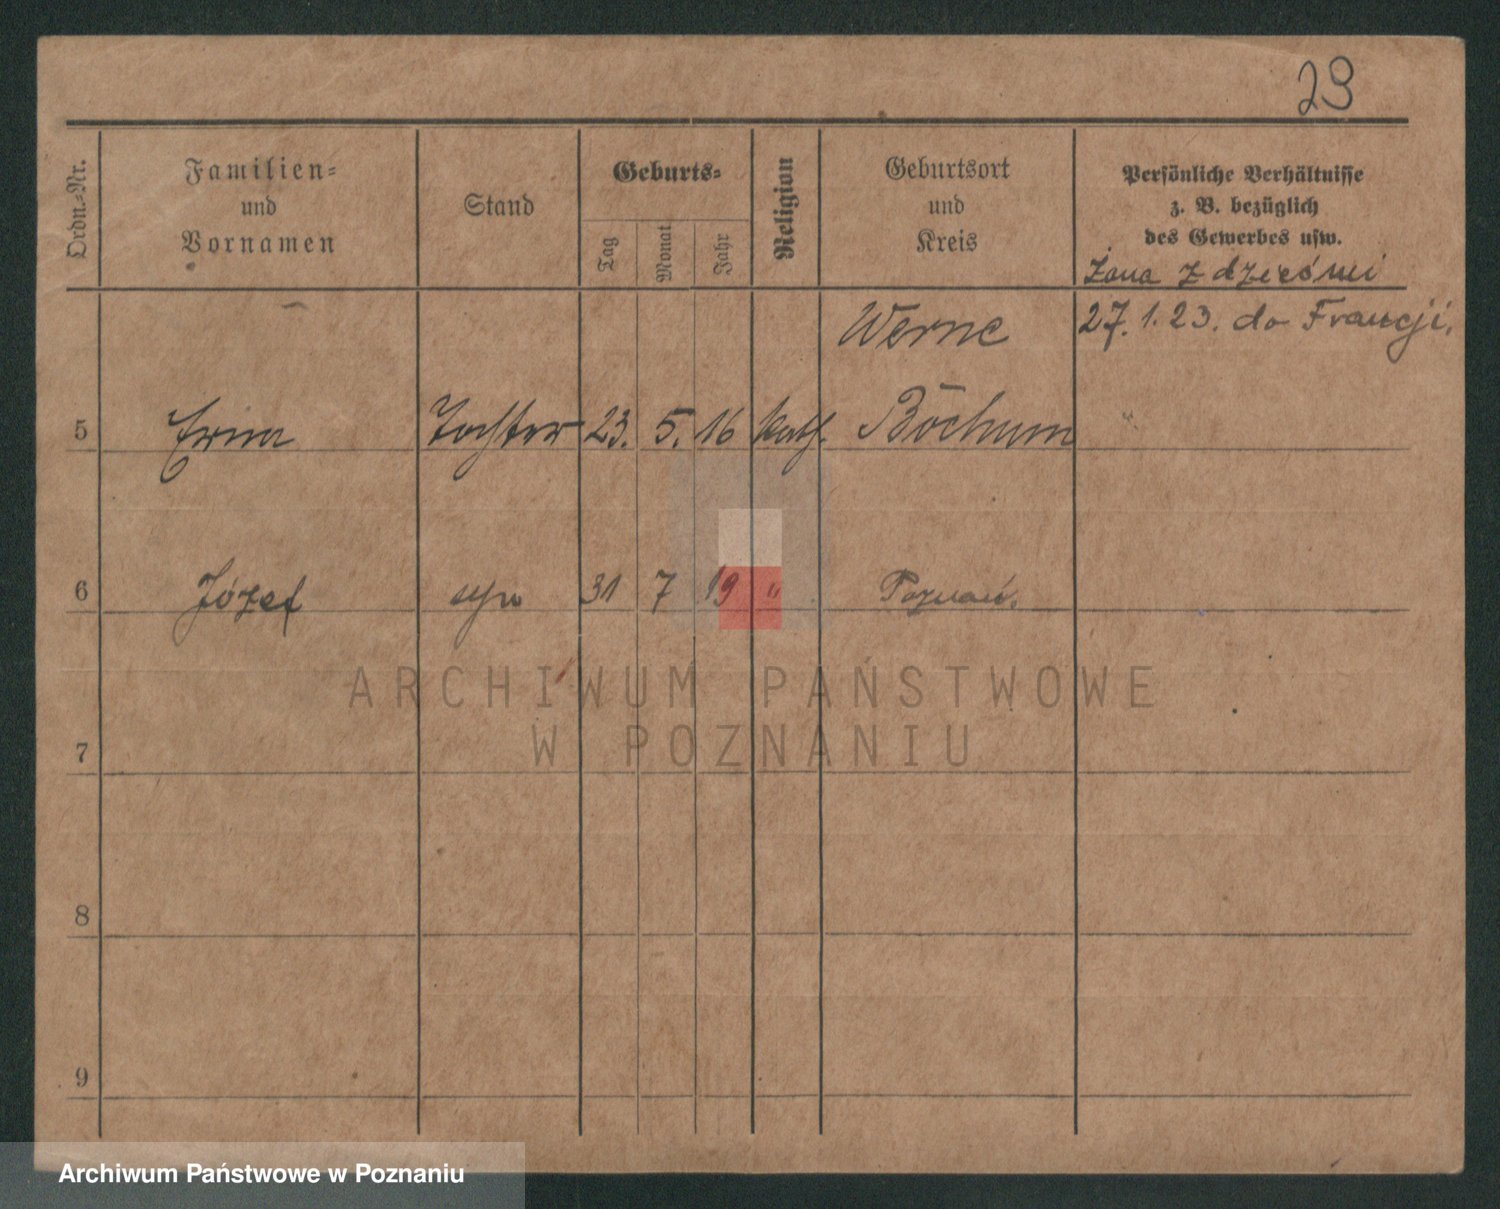 29
Ordn.-Nr.
Familien-
und
Vornamen
Stand
Geburts-
Tag
Monat
Jahr
Religion
Geburtsort
und
Kreis
Persönliche Verhältnisse
z. B. bezüglich
des Gewerbes usw.
Żona z dziećmi
27.1.23. do Francji.
Werne
5 Erna Tochter 23. 5. 16 kath. Bochum "
6 Józef syn 31 7 19 " Poznań.
7
8
9
ARCHIWUM PAŃSTWOWE
W POZNANIU
Archiwum Państwowe w Poznaniu